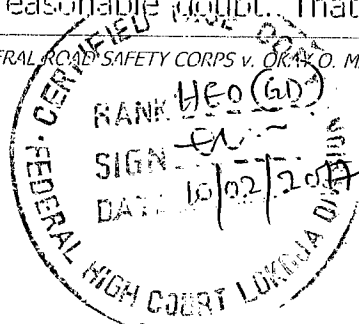 reasonable doubt. That
FERAL ROAD SAFETY CORPS v. OKAY O. M
CERTIFIED TRUE COPY
RANK HEO (GD)
SIGN
DATE 10/02/2017
FEDERAL HIGH COURT LOKOJA DIVISION